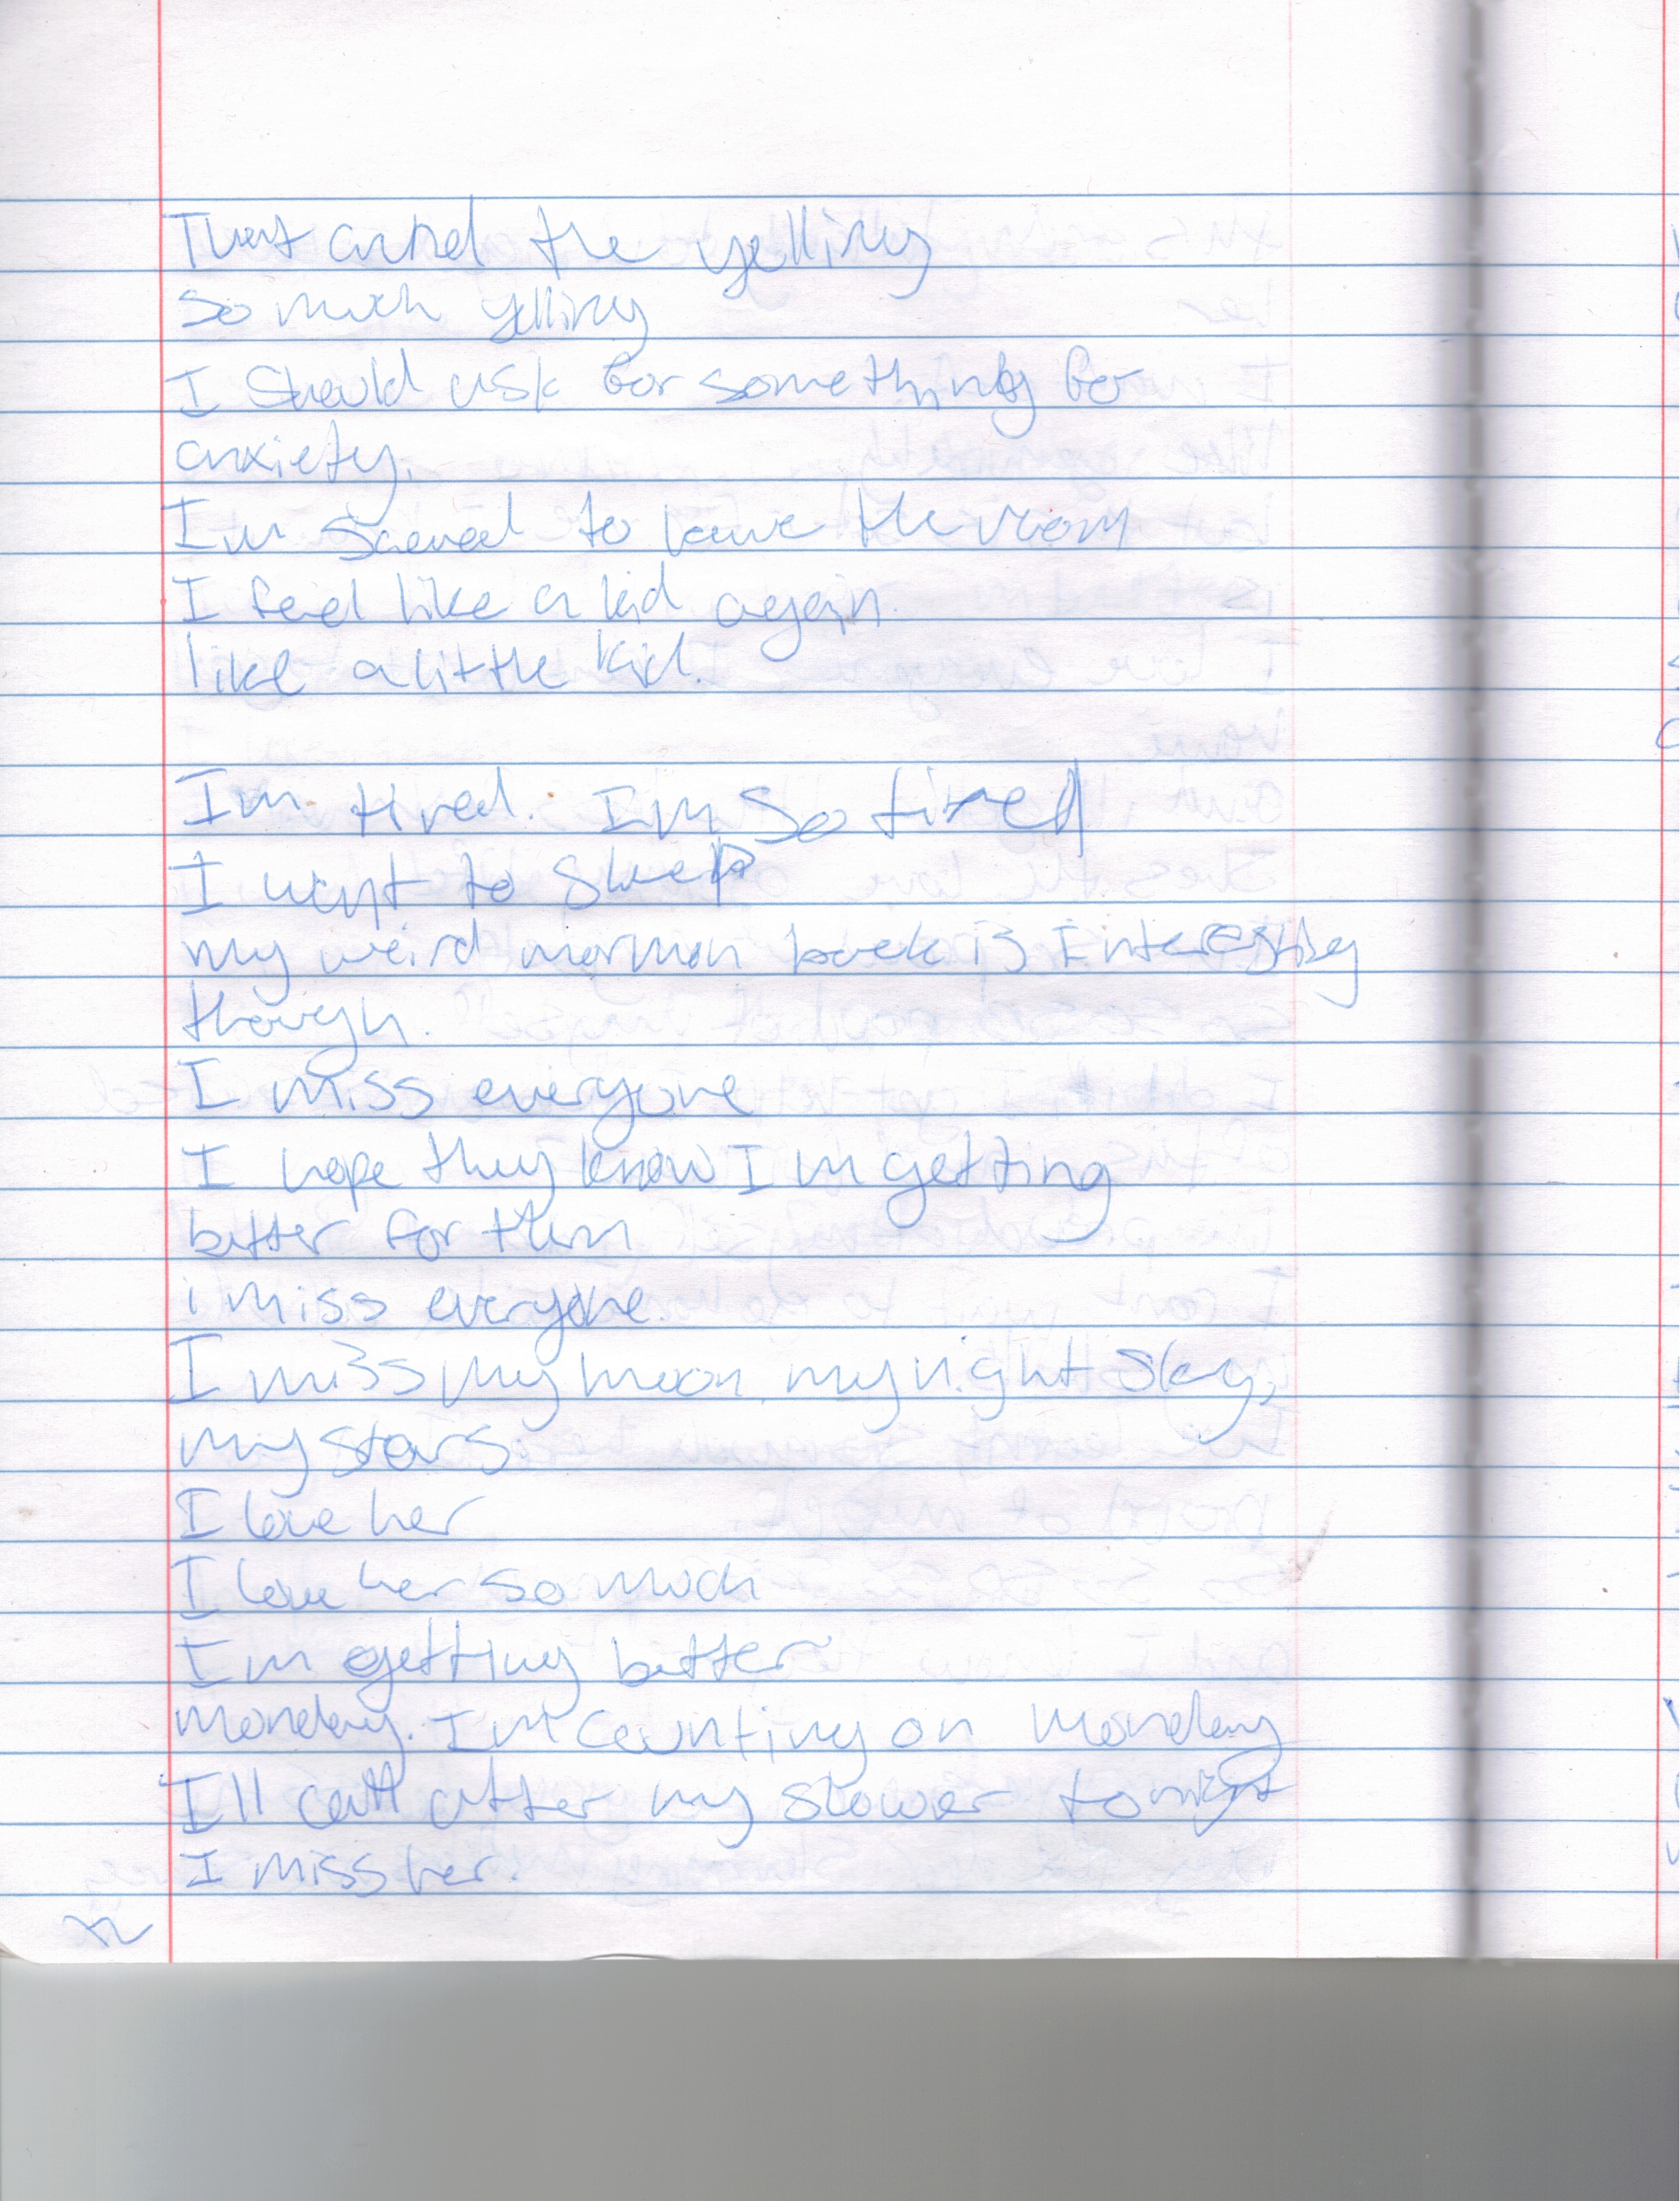 That and the yelling
so much yelling
I should ask for something for
anxiety.
Im scared to leave the room
I feel like a kid again.
like a little kid.
Im tired. Im so tired
I want to sleep
my weird mormon book is Interesting
though.
I miss everyone
I hope they know Im getting
better for them
i miss everyone.
I miss my moon, my night sky,
my stars
I love her
I love her so much
Im getting better
monday. Im counting on monday
I'll call after my shower tonight
I miss her.